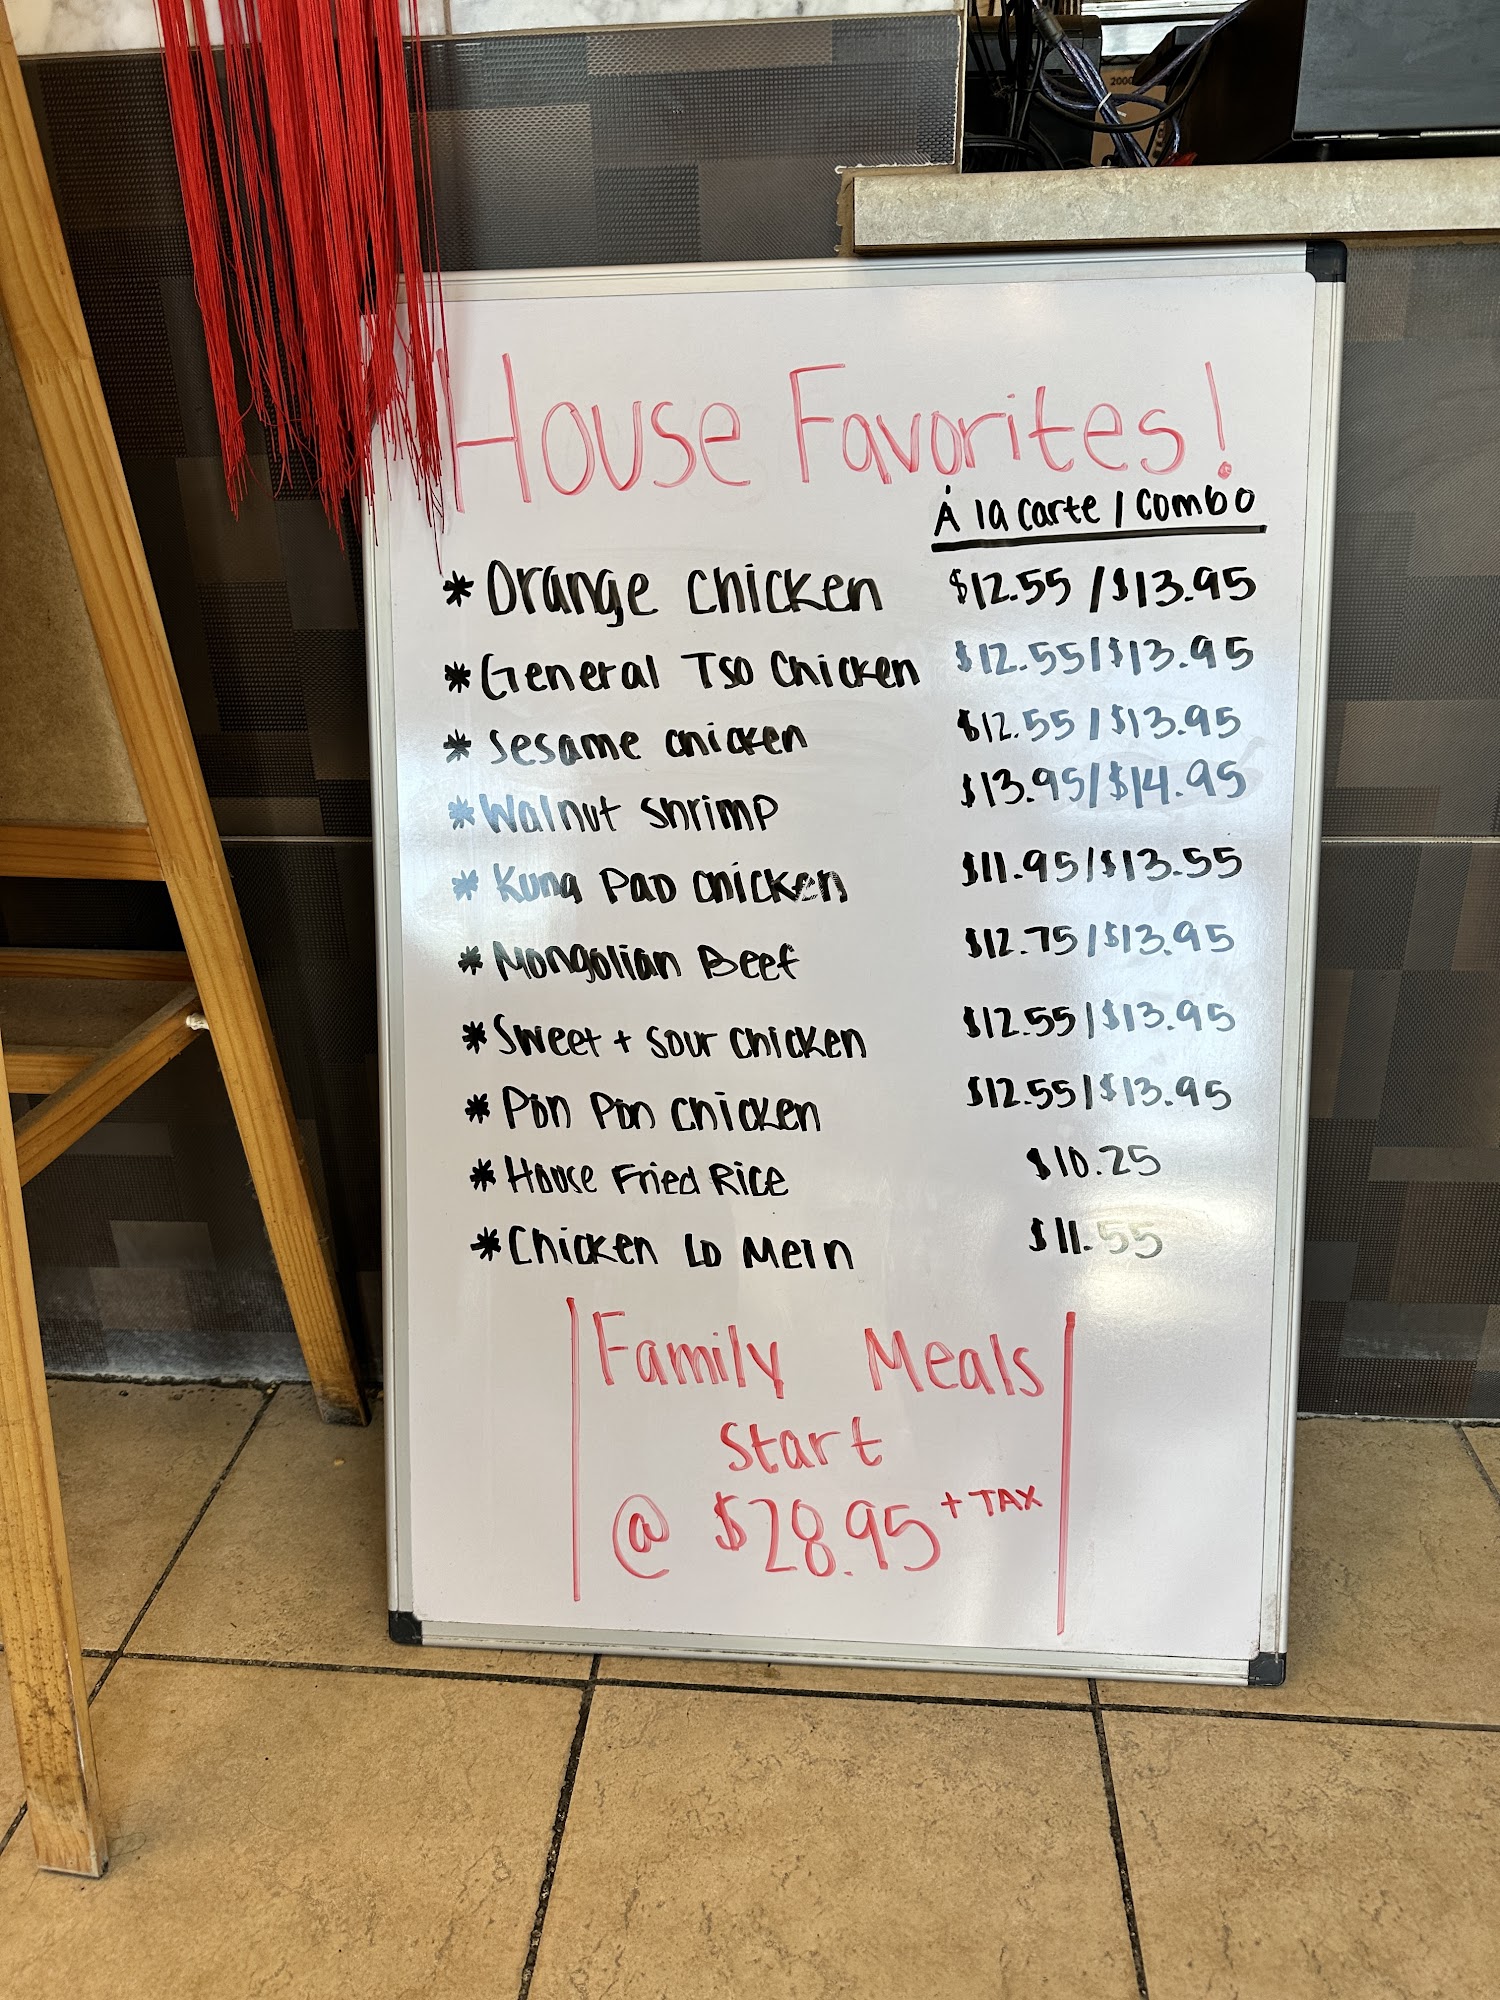 2000
House Favorites!
À la carte / combo
* Orange Chicken $12.55 / $13.95
* General Tso Chicken $12.55 / $13.95
* Sesame chicken $12.55 / $13.95
* Walnut Shrimp $13.95 / $14.95
* Kung Pao chicken $11.95 / $13.55
* Mongolian Beef $12.75 / $13.95
* Sweet + Sour Chicken $12.55 / $13.95
* Pon Pon Chicken $12.55 / $13.95
* House Fried Rice $10.25
* Chicken Lo Mein $11.55
Family Meals
Start
@ $28.95 + TAX